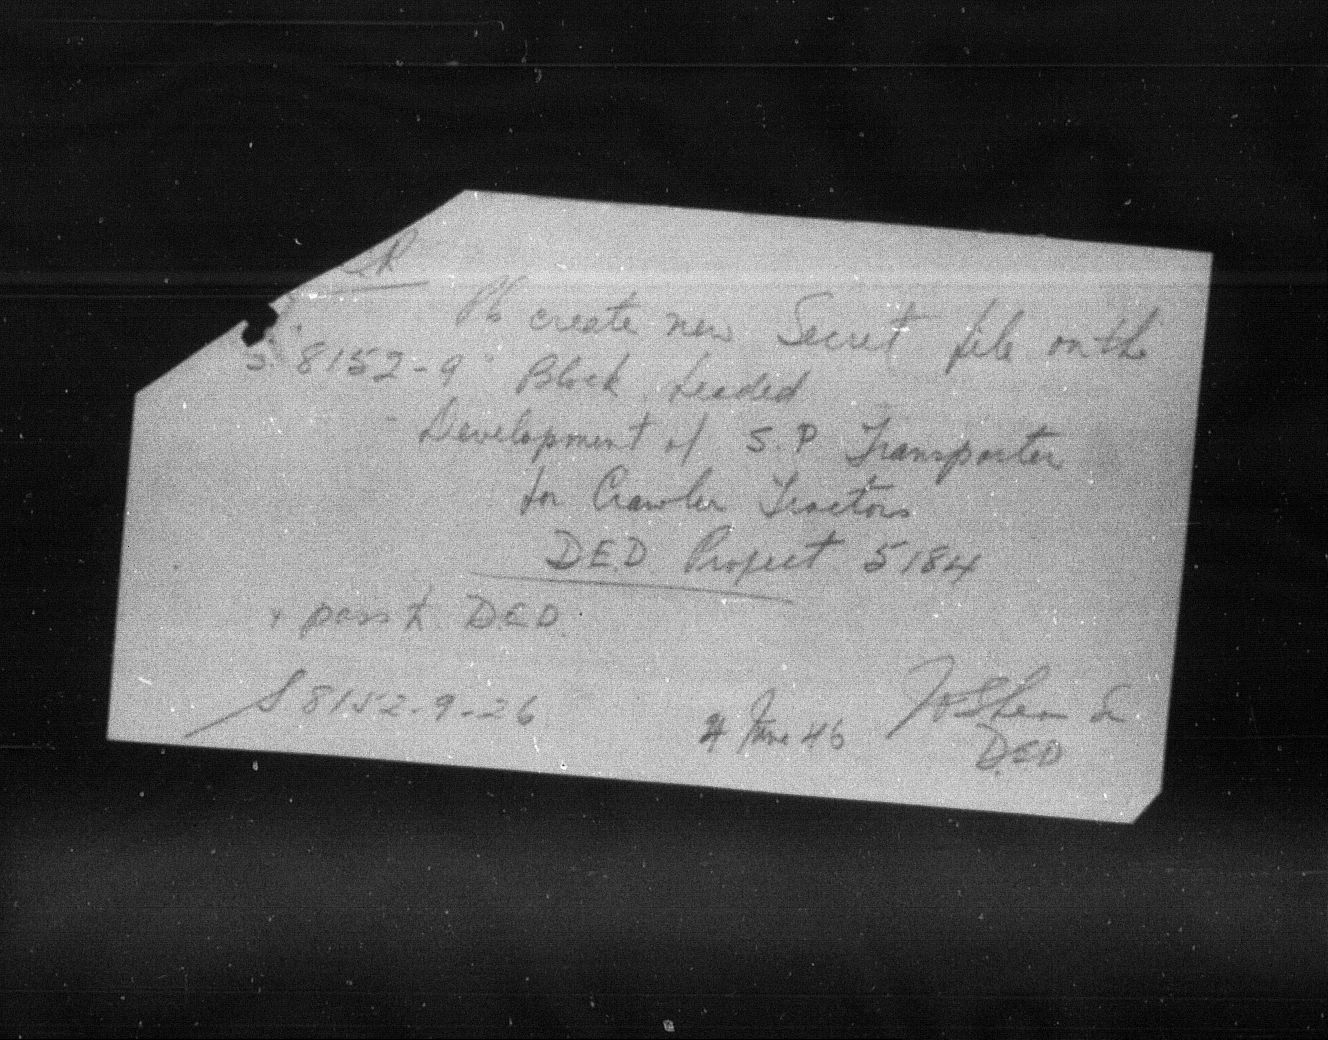 CR
Pls create new Secret file on the
S. "8152-9" Block headed
- Development of S.P Transporter
for Crawler Tractors
D.E.D Project 5184
+ pass to D.E.D.
S 8152-9-26
4 June 46
D.E.D